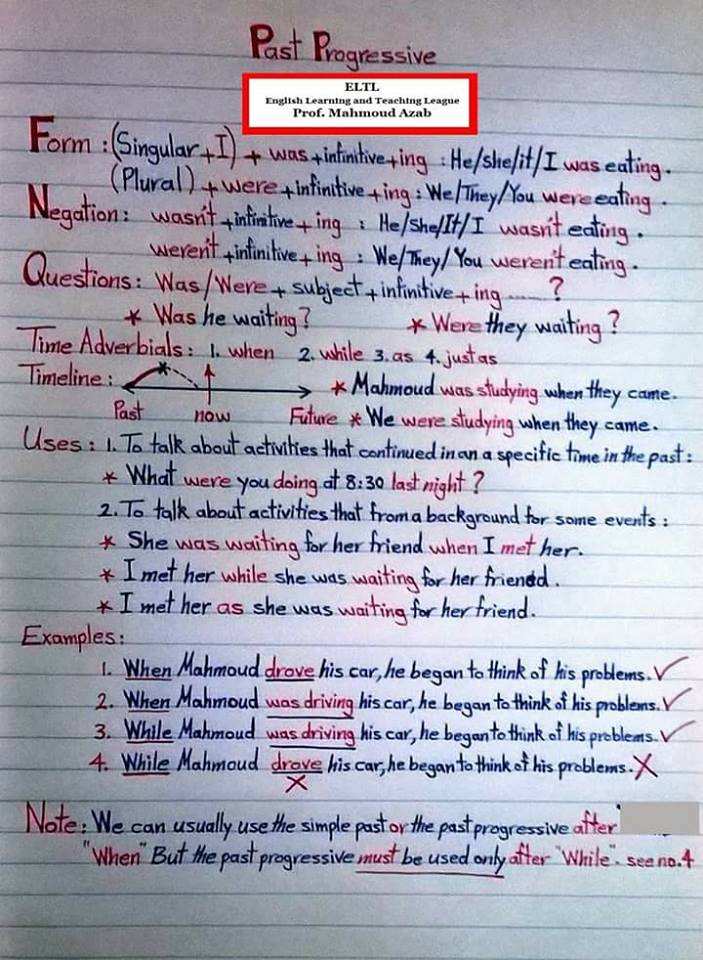 Past Progressive
ELTL
English Learning and Teaching League
Prof. Mahmoud Azab
Form : (Singular + I) + was + infinitive + ing : He/she/it/I was eating.
(Plural) + were + infinitive + ing : We/They/You were eating.
Negation: wasn't + infinitive + ing : He/She/It/I wasn't eating.
weren't + infinitive + ing : We/They/You weren't eating.
Questions: Was/Were + subject + infinitive + ing ......?
* Was he waiting? * Were they waiting?
Time Adverbials: 1. when 2. while 3. as 4. just as
Timeline: * Mahmoud was studying when they came.
Past now Future * We were studying when they came.
Uses: 1. To talk about activities that continued in an a specific time in the past:
* What were you doing at 8:30 last night?
2. To talk about activities that from a background for some events:
* She was waiting for her friend when I met her.
* I met her while she was waiting for her friend.
* I met her as she was waiting for her friend.
Examples:
1. When Mahmoud drove his car, he began to think of his problems. ✓
2. When Mahmoud was driving his car, he began to think of his problems. ✓
3. While Mahmoud was driving his car, he began to think of his problems. ✓
4. While Mahmoud drove his car, he began to think of his problems. X
X
Note: We can usually use the simple past or the past progressive after
"When" But the past progressive must be used only after "While". see no.4